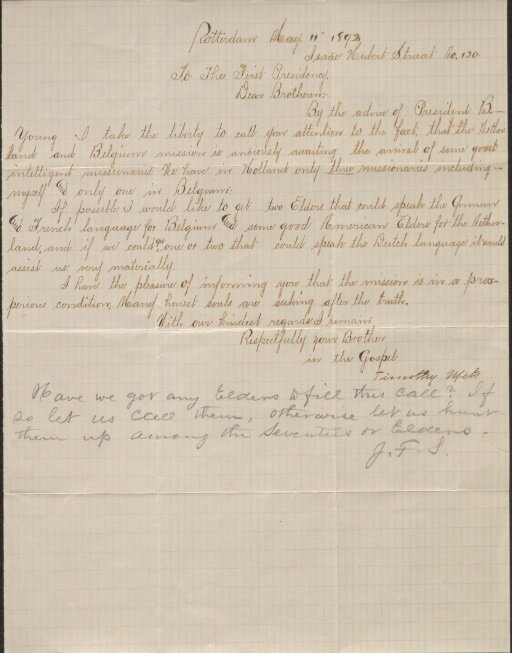 Rotterdam May 11th 1893
Isaac Hubert Straat No. 120
To The First Presidency.
Dear Brotheren:-
By the advice of President B-
Young I take the liberty to call your attention to the fact, that the Nether
land and Belgium mission is anxiously awaiting the arrival of some good
intelligent missionaries. We have in Holland only three missionaries including-
myself & only one in Belgium.
If possible I would like to get two Elders that could speak the German
& French language for Belgium & some good American Elders for the Nether-
land, and if we could get one or two that could speak the Dutch language it would
assist us very materially.
I have the pleasure of informing you that the mission is in a pros-
perious condition, Many honest souls are seeking after the truth.
With our kindest regards I remain
Respectfully your Brother
in the Gospel
Timothy Mets
Have we got any Elders to fill this call? If
so let us call them, otherwise let us hunt
them up among the Seventies or Elders.
J. F. S.